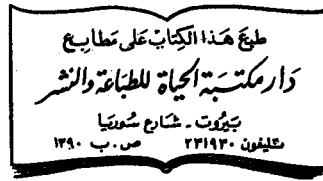 طبع هَذا الكِتابْ عَلى مَطابِع
دَار مكتبَة الحيَاة للطبَاعَة والنشر
بَيْرُوت . شَارع سُوريَا
تليفون ٢٣١٩٣٠ ص . ب ١٣٩٠